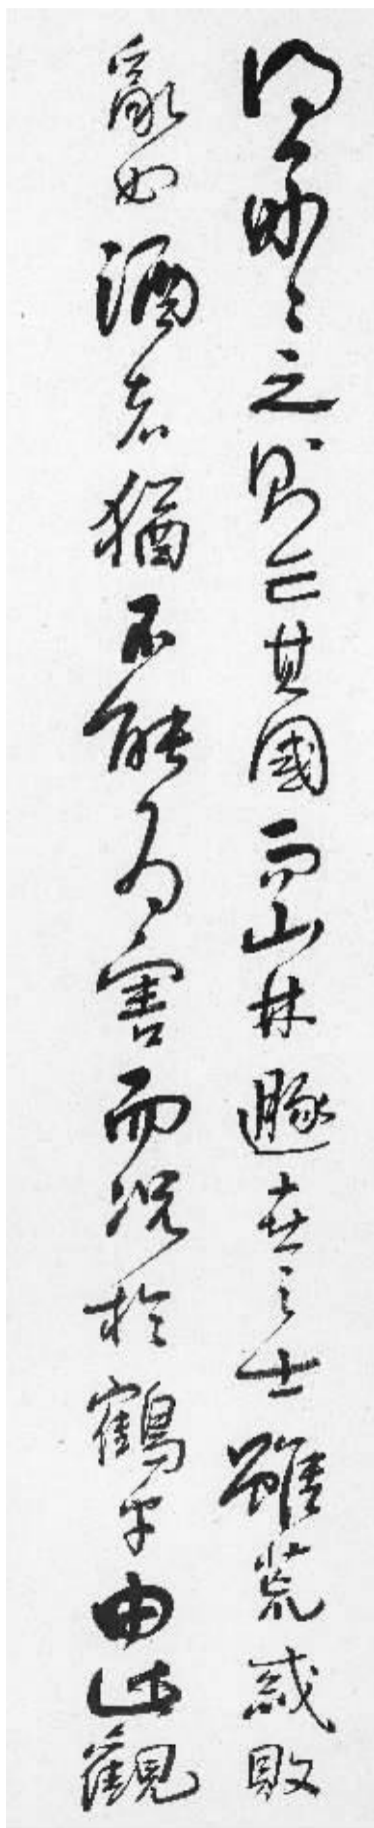 得好〻之則亡其國而山林遯世之士雖荒惑敗
亂如酒者猶不能為害而况於鶴乎由此觀